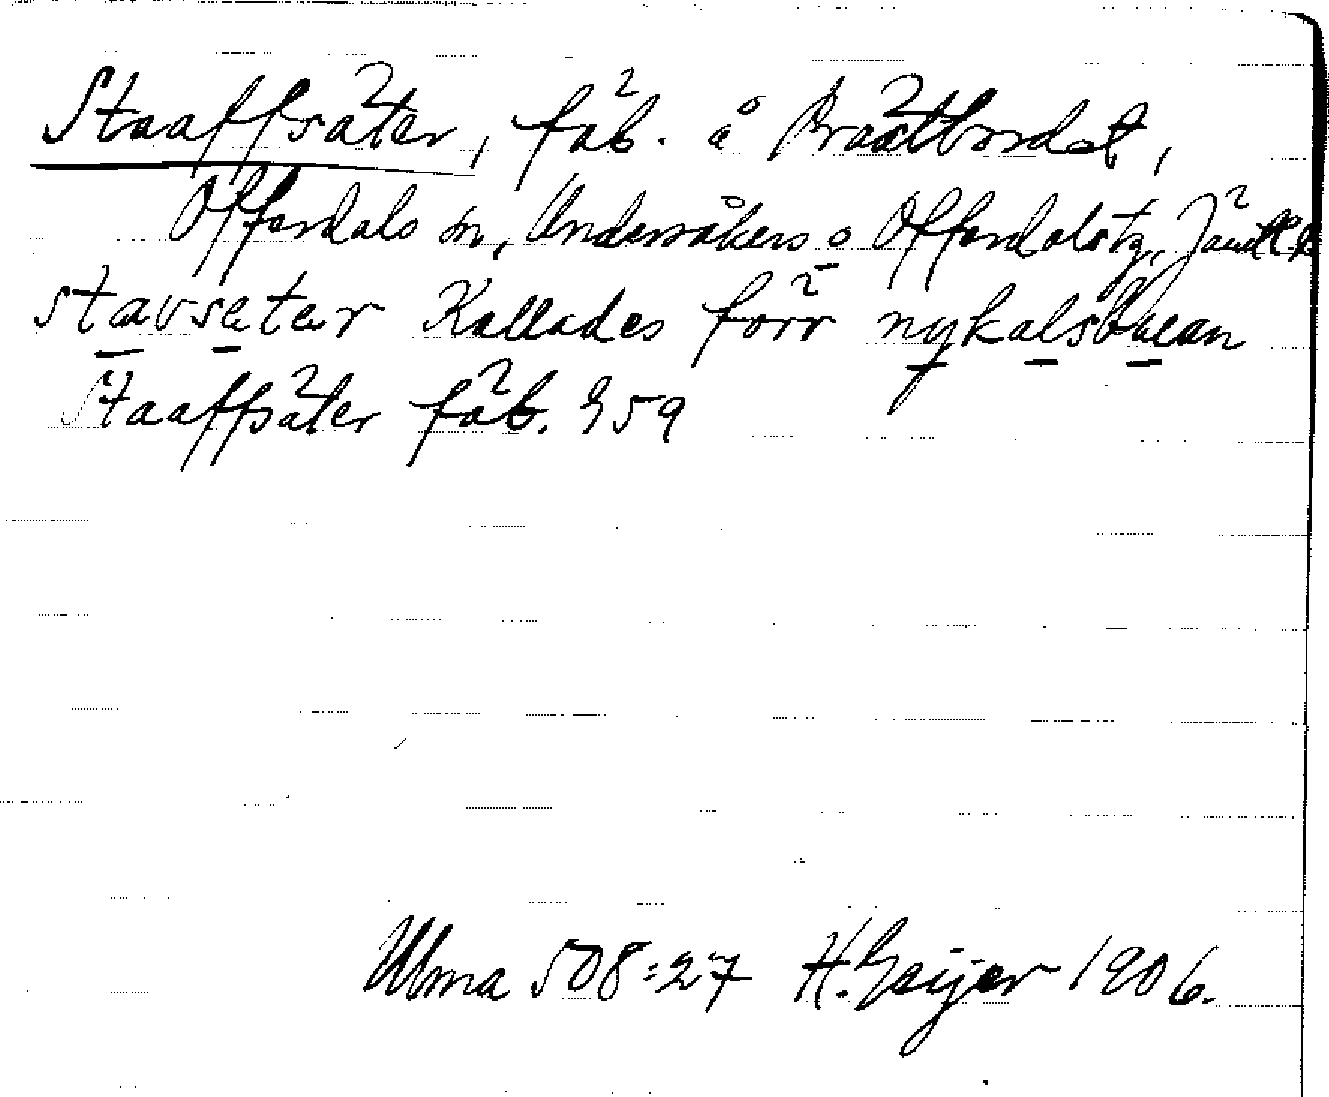 Staaffsäter, fäb. å Bräätbordet,
Offerdals sn, Undersåkers o Offerdalstg, Jämtl.
stavsetər Kallades förr nykälsbuan
Staaffsäter fäb. 959
Ulma 508:27 H. Geijer 1906.